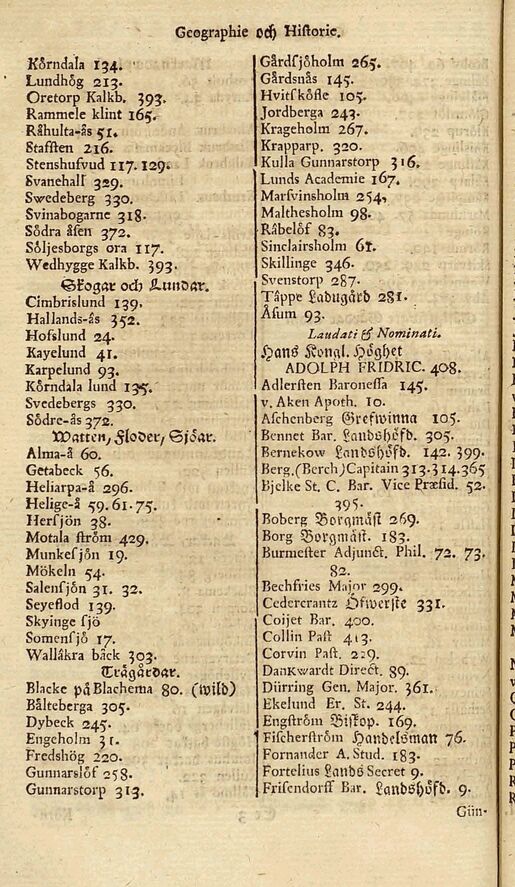 Geographie och Historie.
Kőrndala 134.
Lundhőg 213.
Oretorp Kalkb. 393.
Rammele klint 165.
Råhulta-ås 51.
Stafsten 216.
Stenshufvud 117. 129.
Svanehall 329.
Swedeberg 330.
Svinabogarne 318.
Sődra åsen 372.
Sőljesborgs ora 117.
Wedhygge Kalkb. 393.
Skogar och Lundar.
Cimbrislund 139.
Hallands-ås 352.
Hofslund 24.
Kayelund 41.
Karpelund 93.
Kőrndala lund 135.
Svedebergs 330.
Sődre-ås 372.
Watten, Floder, Sjőar.
Alma-å 60.
Getabeck 56.
Heliarpa-å 296.
Helige-å 59. 61. 75.
Hersjőn 38.
Motala strőm 429.
Munkesjőn 19.
Mőkeln 54.
Salensjőn 31. 32.
Seyeflod 139.
Skyinge sjő
Somensjő 17.
Wallåkra bäck 303.
Trägårdar.
Blacke på Blachema 80. (wild)
Bälteberga 305.
Dybeck 245.
Engeholm 31.
Fredshőg 220.
Gunnarslőf 258.
Gunnarstorp 313.
Gårdsjőholm 265.
Gårdsnås 145.
Hvitskőfle 105.
Jordberga 243.
Krageholm 267.
Krapparp. 320.
Kulla Gunnarstorp 316.
Lunds Academie 167.
Marsvinsholm 254,
Malthesholm 98.
Råbelőf 83.
Sinclairsholm 61.
Skillinge 346.
Svenstorp 287.
Tåppe Ladugård 281.
Åsum 93.
Laudati & Nominati.
Hans Kongl. Hőghet
ADOLPH FRIDRIC. 408.
Adlersten Baronessa 145.
v. Aken Apoth. 10.
Aschenberg Grefwinna 105.
Bennet Bar. Landshőfd. 305.
Bernekow Landshőfd. 142. 399.
Berg, (Berch) Capitain 313. 314. 365
Bjelke St. C. Bar. Vice Præsid. 52.
395.
Boberg Borgmäst 269.
Borg Borgmäst. 183.
Burmester Adjunct. Phil. 72. 73.
82.
Bechfries Major 299.
Cedercrantz Őfwerste 331.
Coijet Bar. 400.
Collin Past 413.
Corvin Past. 229.
Dankwardt Direct. 89.
Dürring Gen. Major. 361.
Ekelund Er. St. 244.
Engstrőm Biskop. 169.
Fischerstrőm Handelsman 76.
Fornander A. Stud. 183.
Fortelius Lands Secret 9.
Frisendorff Bar. Landshőfd. 9.
Gün-